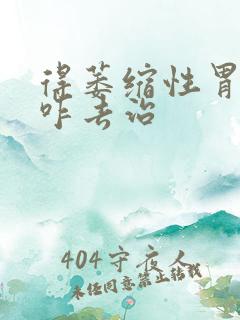 得萎缩性胃
咋去治
404守夜人
未经同意禁止转载